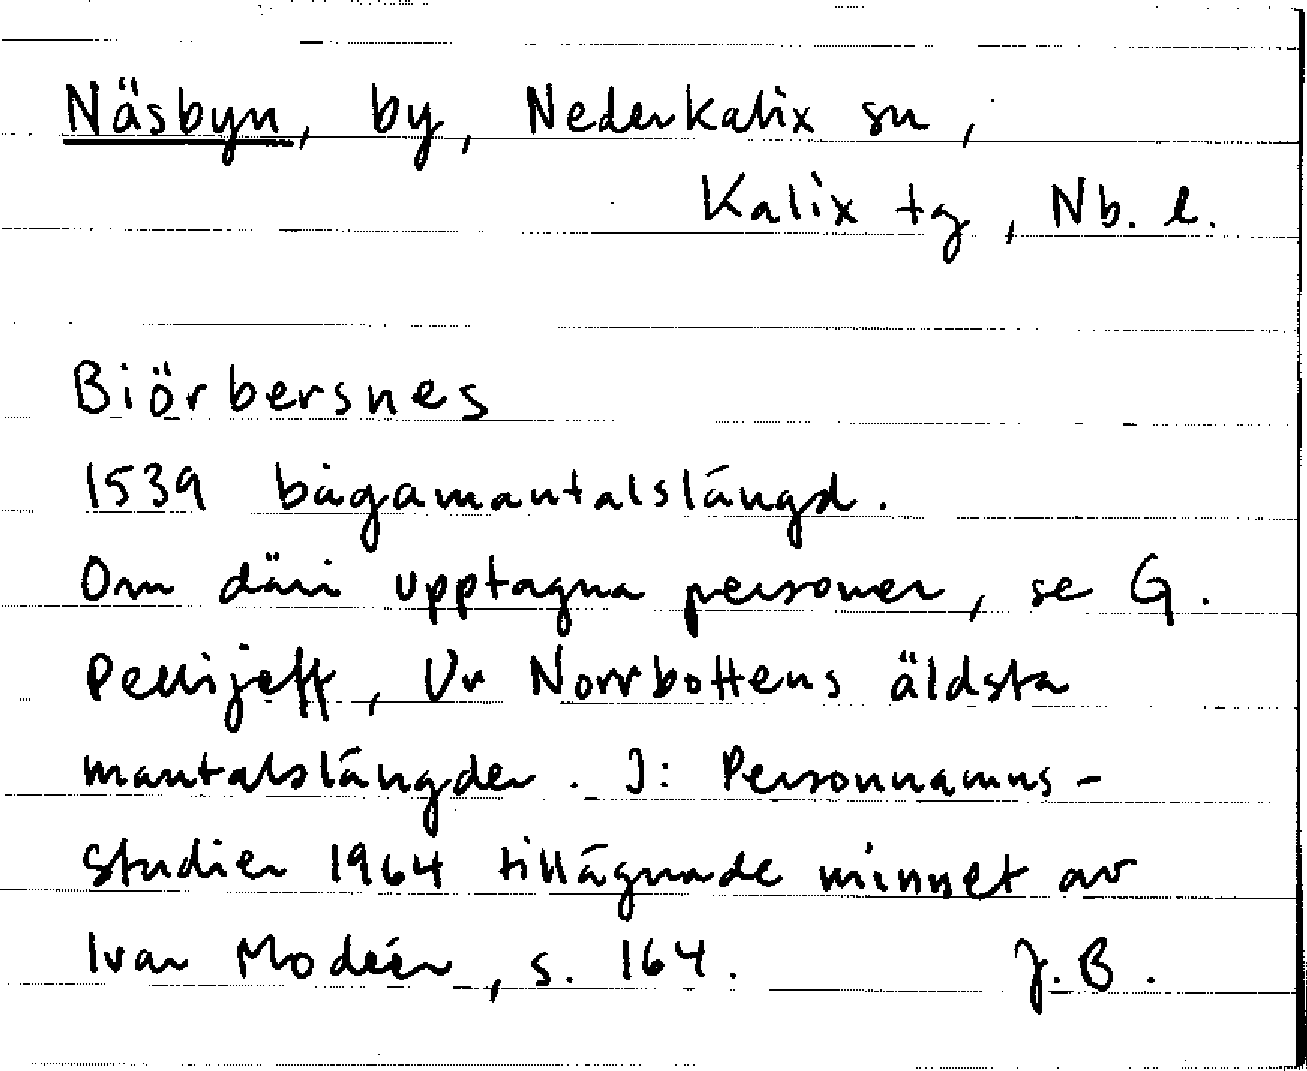 Näsbyn, by, Nederkalix sn,
Kalix tg, Nb. l.
Biörbersnes
1539 bågamantalslängd.
Om däri upptagna personer, se G.
Pellijeff, Ur Norrbottens äldsta
mantalslängder. I: Personnamns-
studier 1964 tillägnade minnet av
Ivar Modéer, s. 164. J.B.